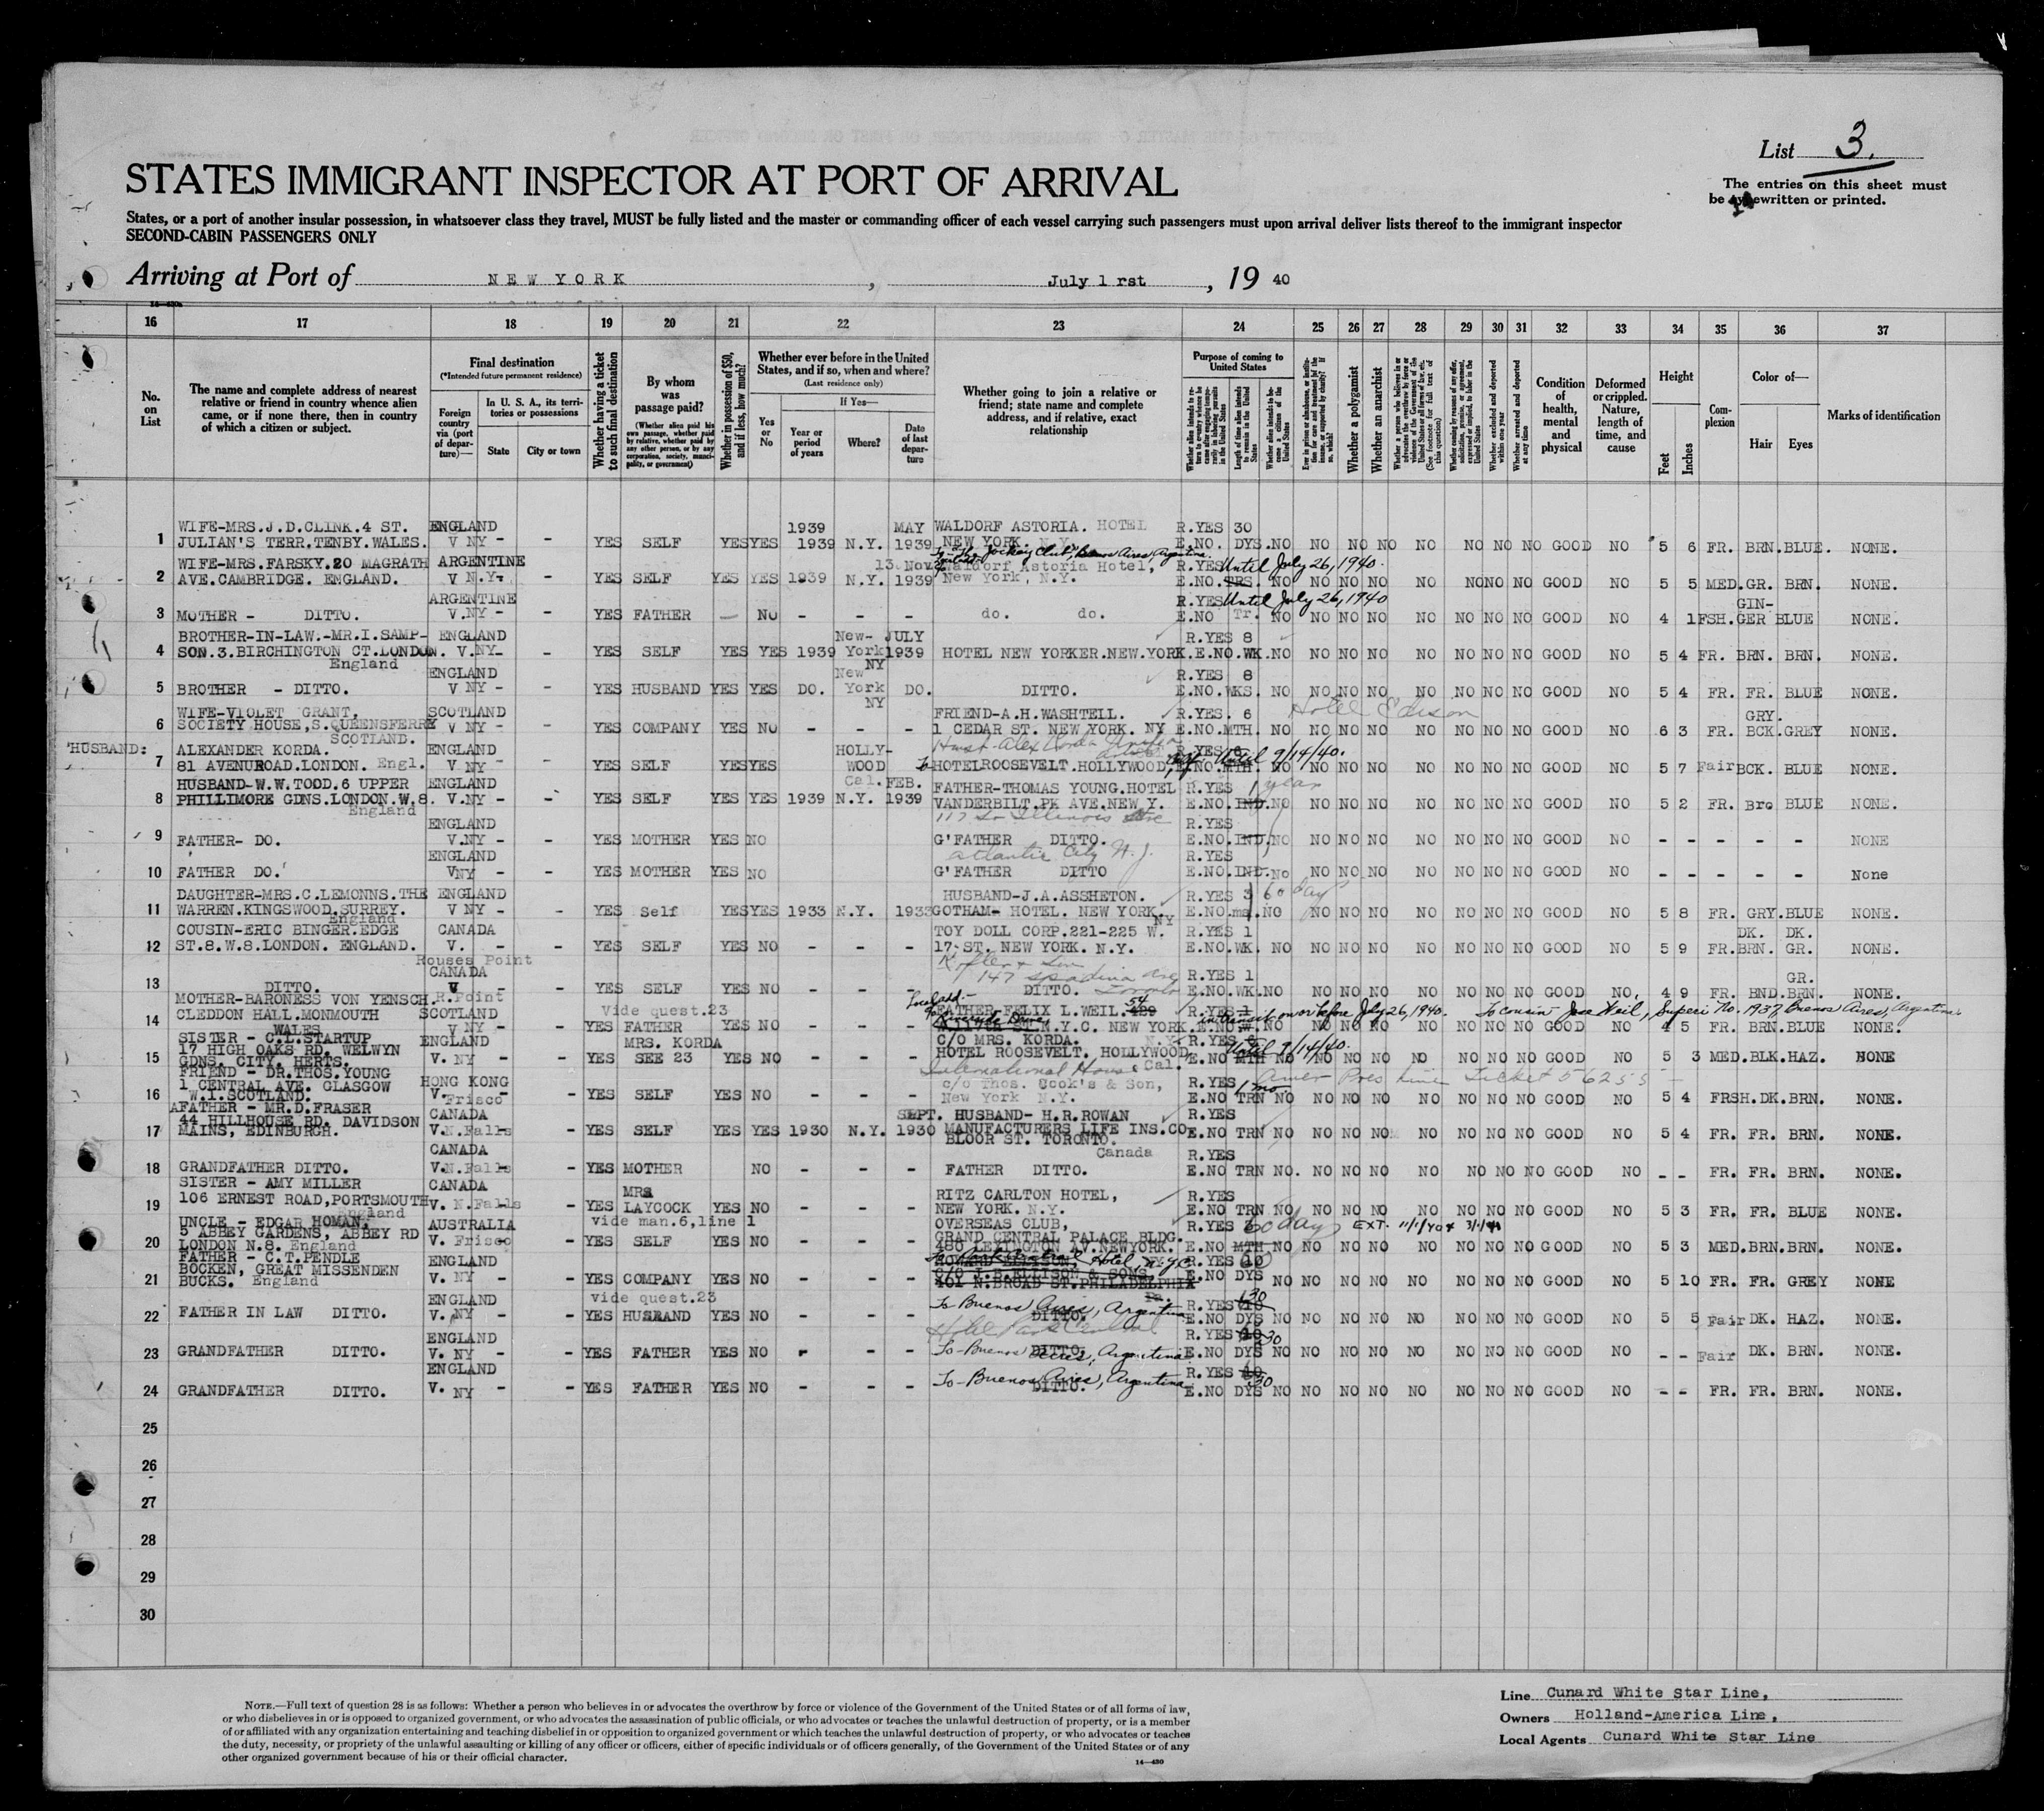 List 3.
The entries on this sheet must
be typewritten or printed.
STATES IMMIGRANT INSPECTOR AT PORT OF ARRIVAL
States, or a port of another insular possession, in whatsoever class they travel, MUST be fully listed and the master or commanding officer of each vessel carrying such passengers must upon arrival deliver lists thereof to the immigrant inspector
SECOND-CABIN PASSENGERS ONLY
Arriving at Port of NEW YORK, July 1 rst, 19 40
16 17 18 19 20 21 22 23 24 25 26 27 28 29 30 31 32 33 34 35 36 37
No. on List
The name and complete address of nearest relative or friend in country whence alien came, or if none there, then in country of which a citizen or subject.
Final destination
(*Intended future permanent residence)
Foreign country via (port of departure)—
In U. S. A., its territories or possessions
State City or town
Whether having a ticket to such final destination
By whom was passage paid?
(Whether alien paid his own passage, whether paid by relative, whether paid by any other person, or by any corporation, society, municipality, or government)
Whether in possession of $50, and if less, how much?
Whether ever before in the United States, and if so, when and where?
(Last residence only)
Yes or No
If Yes—
Year or period of years
Where?
Date of last departure
Whether going to join a relative or friend; state name and complete address, and if relative, exact relationship
Purpose of coming to United States
Length of time alien intends to remain in the United States
Whether alien intends to become a citizen of the United States
Whether a polygamist
Whether an anarchist
Whether excluded and deported within one year
Whether arrested and deported at any time
Condition of health, mental and physical
Deformed or crippled. Nature, length of time, and cause
Height
Feet Inches
Complexion
Color of—
Hair Eyes
Marks of identification
WIFE-MRS.J.D.CLINK.4 ST. ENGLAND 1939 MAY WALDORF ASTORIA. HOTEL R.YES 30
1 JULIAN'S TERR.TENBY.WALES. V NY - - YES SELF YES YES 1939 N.Y. 1939 NEW YORK. N.Y. E.NO. DYS.NO NO NO NO NO NO NO NO GOOD NO 5 6 FR. BRN. BLUE. NONE.
To-The Jockey Club, Buenos Aires, Argentina.
WIFE-MRS.FARSKY.20 MAGRATH ARGENTINE 13 Nov. Waldorf Astoria Hotel, R.YES Until July 26, 1940.
2 AVE.CAMBRIDGE. ENGLAND. V N.Y. - YES SELF YES YES 1939 N.Y. 1939 New York, N.Y. E.NO. NO NO NO NO NO NO NO NO GOOD NO 5 5 MED. GR. BRN. NONE.
ARGENTINE R.YES Until July 26, 1940 GIN-
3 MOTHER - DITTO. V.NY - - YES FATHER - NO - - - do. do. E.NO Tr. NO NO NO NO NO NO NO NO GOOD NO 4 1 FSH. GER BLUE NONE.
BROTHER-IN-LAW.-MR.I.SAMP- ENGLAND New- JULY R.YES 8
4 SON.3.BIRCHINGTON CT.LONDON. V.NY- - YES SELF YES YES 1939 York 1939 HOTEL NEW YORKER.NEW.YORK. E.NO.WK.NO NO NO NO NO NO NO NO GOOD NO 5 4 FR. BRN. BRN. NONE.
England NY
ENGLAND New R.YES 8
5 BROTHER - DITTO. V NY - - YES HUSBAND YES YES DO. York DO. DITTO. E.NO. WKS. NO NO NO NO NO NO NO NO GOOD NO 5 4 FR. FR. BLUE NONE.
NY
WIFE-VIOLET GRANT, SCOTLAND FRIEND-A.H.WASHTELL. R.YES. 6 Hotel Edison GRY.
6 SOCIETY HOUSE,S.QUEENSFERRY V NY - - YES COMPANY YES NO - - - 1 CEDAR ST. NEW YORK. NY E.NO.MTH. NO NO NO NO NO NO NO NO GOOD NO 6 3 FR. BCK. GREY NONE.
SCOTLAND.
HUSBAND: ALEXANDER KORDA. ENGLAND HOLLY- R.YES 6 Until 9/14/40.
7 81 AVENUROAD.LONDON. Engl. V NY - - YES SELF YES YES WOOD To HOTELROOSEVELT.HOLLYWOOD, E.NO.MTH. NO NO NO NO NO NO NO NO GOOD NO 5 7 Fair BCK. BLUE NONE.
HUSBAND-W.W.TODD.6 UPPER ENGLAND Cal. FEB. FATHER-THOMAS YOUNG.HOTEL R.YES 1 year
8 PHILLIMORE GDNS.LONDON.W.8. V.NY - - YES SELF YES YES 1939 N.Y. 1939 VANDERBILT.PK AVE.NEW Y. E.NO.IND.NO NO NO NO NO NO NO NO GOOD NO 5 2 FR. Bro BLUE NONE.
England 117 So Illinois Ave
ENGLAND R.YES
9 FATHER- DO. V.NY - - YES MOTHER YES NO G'FATHER DITTO. E.NO.IND.NO NO NO NO NO NO NO NO GOOD NO - - - - - NONE
ENGLAND Atlantic City N.J. R.YES
10 FATHER DO. V NY - - YES MOTHER YES NO G'FATHER DITTO E.NO.IND.NO NO NO NO NO NO NO NO GOOD NO - - - - - None
DAUGHTER-MRS.C.LEMONNS.THE ENGLAND HUSBAND-J.A.ASSHETON. R.YES 3 60 days
11 WARREN.KINGSWOOD.SURREY. V NY - - YES Self YES YES 1933 N.Y. 1933 GOTHAM- HOTEL. NEW YORK. NY E.NO. NO NO NO NO NO NO NO NO GOOD NO 5 8 FR. GRY. BLUE NONE.
England
COUSIN-ERIC BINGER.EDGE CANADA TOY DOLL CORP.221-225 W. R.YES 1 DK. DK.
12 ST.8.W.8.LONDON. ENGLAND. V. - - YES SELF YES NO - - - 17-ST. NEW YORK. N.Y. E.NO.WK. NO NO NO NO NO NO NO NO GOOD NO 5 9 FR. BRN. GR. NONE.
Rouses Point
CANADA 147 Spadina Ave R.YES 1 GR.
13 DITTO. V - - YES SELF YES NO - - - DITTO. Toronto E.NO.WK.NO NO NO NO NO NO NO NO GOOD NO. 4 9 FR. BND. BRN. NONE.
MOTHER-BARONESS VON YENSCH. R.Point
14 CLEDDON HALL.MONMOUTH SCOTLAND vide quest.23 FATHER-FELIX L.WEIL. R.YES 1 in transit on or before July 26, 1940. To cousin Jose Weil, Superi No. 1937, Buenos Aires, Argentina
WALES V NY - - YES FATHER YES NO - - - 54 Riverside Drive, N.Y.C. NEW YORK. E.NO. NO NO NO NO NO NO NO NO GOOD NO 4 5 FR. BRN. BLUE NONE.
SISTER - C.L.STARTUP ENGLAND MRS. KORDA C/O MRS. KORDA. R.YES Until 9/14/40.
15 17 HIGH OAKS RD, WELWYN V. NY - - YES SEE 23 YES NO - - - HOTEL ROOSEVELT. HOLLYWOOD E.NO MTH NO NO NO NO NO NO NO NO GOOD NO 5 3 MED. BLK. HAZ. NONE
GDNS. CITY, HERTS. International House Cal.
FRIEND - DR.THOS.YOUNG Amer Pres Line Ticket 56255
16 1 CENTRAL AVE. GLASGOW HONG KONG c/o Thos. Cook's & Son, R.YES 1 mo
W.1.SCOTLAND. V. Frisco - - YES SELF YES NO - - - New York N.Y. E.NO TRN NO NO NO NO NO NO NO NO GOOD NO 5 4 FRSH. DK. BRN. NONE.
FATHER - MR.D.FRASER CANADA SEPT. HUSBAND- H.R.ROWAN R.YES
17 44 HILLHOUSE RD. DAVIDSON MAINS, EDINBURGH. V.N.Falls - YES SELF YES YES 1930 N.Y. 1930 MANUFACTURERS LIFE INS.CO. E.NO TRN NO NO NO NO NO NO NO NO GOOD NO 5 4 FR. FR. BRN. NONE.
BLOOR ST. TORONTO.
CANADA Canada R.YES
18 GRANDFATHER DITTO. V.N.Falls - YES MOTHER NO - - - FATHER DITTO. E.NO TRN NO. NO NO NO NO NO NO NO GOOD NO - - FR. FR. BRN. NONE.
SISTER - AMY MILLER CANADA MRS RITZ CARLTON HOTEL, R.YES
19 106 ERNEST ROAD,PORTSMOUTH V. N.Falls - YES LAYCOCK YES NO - - - NEW YORK. N.Y. E.NO TRN NO NO NO NO NO NO NO NO GOOD NO 5 3 FR. FR. BLUE NONE.
England
UNCLE - EDGAR HOMAN, AUSTRALIA vide man.6,line 1 OVERSEAS CLUB, R.YES 60 days EXT.
20 5 ABBEY GARDENS, ABBEY RD V. Frisco - YES SELF YES NO - - - GRAND CENTRAL PALACE BLDG.
LONDON N.8. England 480 LEXINGTON AV.NEWYORK. E.NO MTH NO NO NO NO NO NO NO NO GOOD NO 5 3 MED. BRN. BRN. NONE.
FATHER - C.T.PENDLE ENGLAND R.YES
21 BOCKEN, GREAT MISSENDEN V. NY - - YES COMPANY YES NO - - - 401 N.BROAD ST.PHILADELPHIA E.NO DYS NO NO NO NO NO NO NO NO GOOD NO 5 10 FR. FR. GREY NONE
BUCKS. England Pa.
ENGLAND vide quest.23 To Buenos Aires, Argentina R.YES 30
22 FATHER IN LAW DITTO. V. NY - - YES HUSBAND YES NO - - - DITTO. E.NO DYS NO NO NO NO NO NO NO NO GOOD NO 5 5 Fair DK. HAZ. NONE.
ENGLAND Hotel Park Central R.YES 30
23 GRANDFATHER DITTO. V. NY - - YES FATHER YES NO - - - To-Buenos Aires, Argentina DITTO. E.NO DYS NO NO NO NO NO NO NO NO GOOD NO - - Fair DK. BRN. NONE.
ENGLAND R.YES 30
24 GRANDFATHER DITTO. V. NY - - YES FATHER YES NO - - - To-Buenos Aires, Argentina DITTO. E.NO DYS NO NO NO NO NO NO NO NO GOOD NO - - FR. FR. BRN. NONE.
25
26
27
28
29
30
NOTE.—Full text of question 28 is as follows: Whether a person who believes in or advocates the overthrow by force or violence of the Government of the United States or of all forms of law,
or who disbelieves in or is opposed to organized government, or who advocates the assassination of public officials, or who advocates or teaches the unlawful destruction of property, or is a member
of or affiliated with any organization entertaining and teaching disbelief in or opposition to organized government or which teaches the unlawful destruction of property, or who advocates or teaches
the duty, necessity, or propriety of the unlawful assaulting or killing of any officer or officers, either of specific individuals or of officers generally, of the Government of the United States or of any
other organized government because of his or their official character.
14—430
Line Cunard White Star Line,
Owners Holland-America Line,
Local Agents Cunard White Star Line